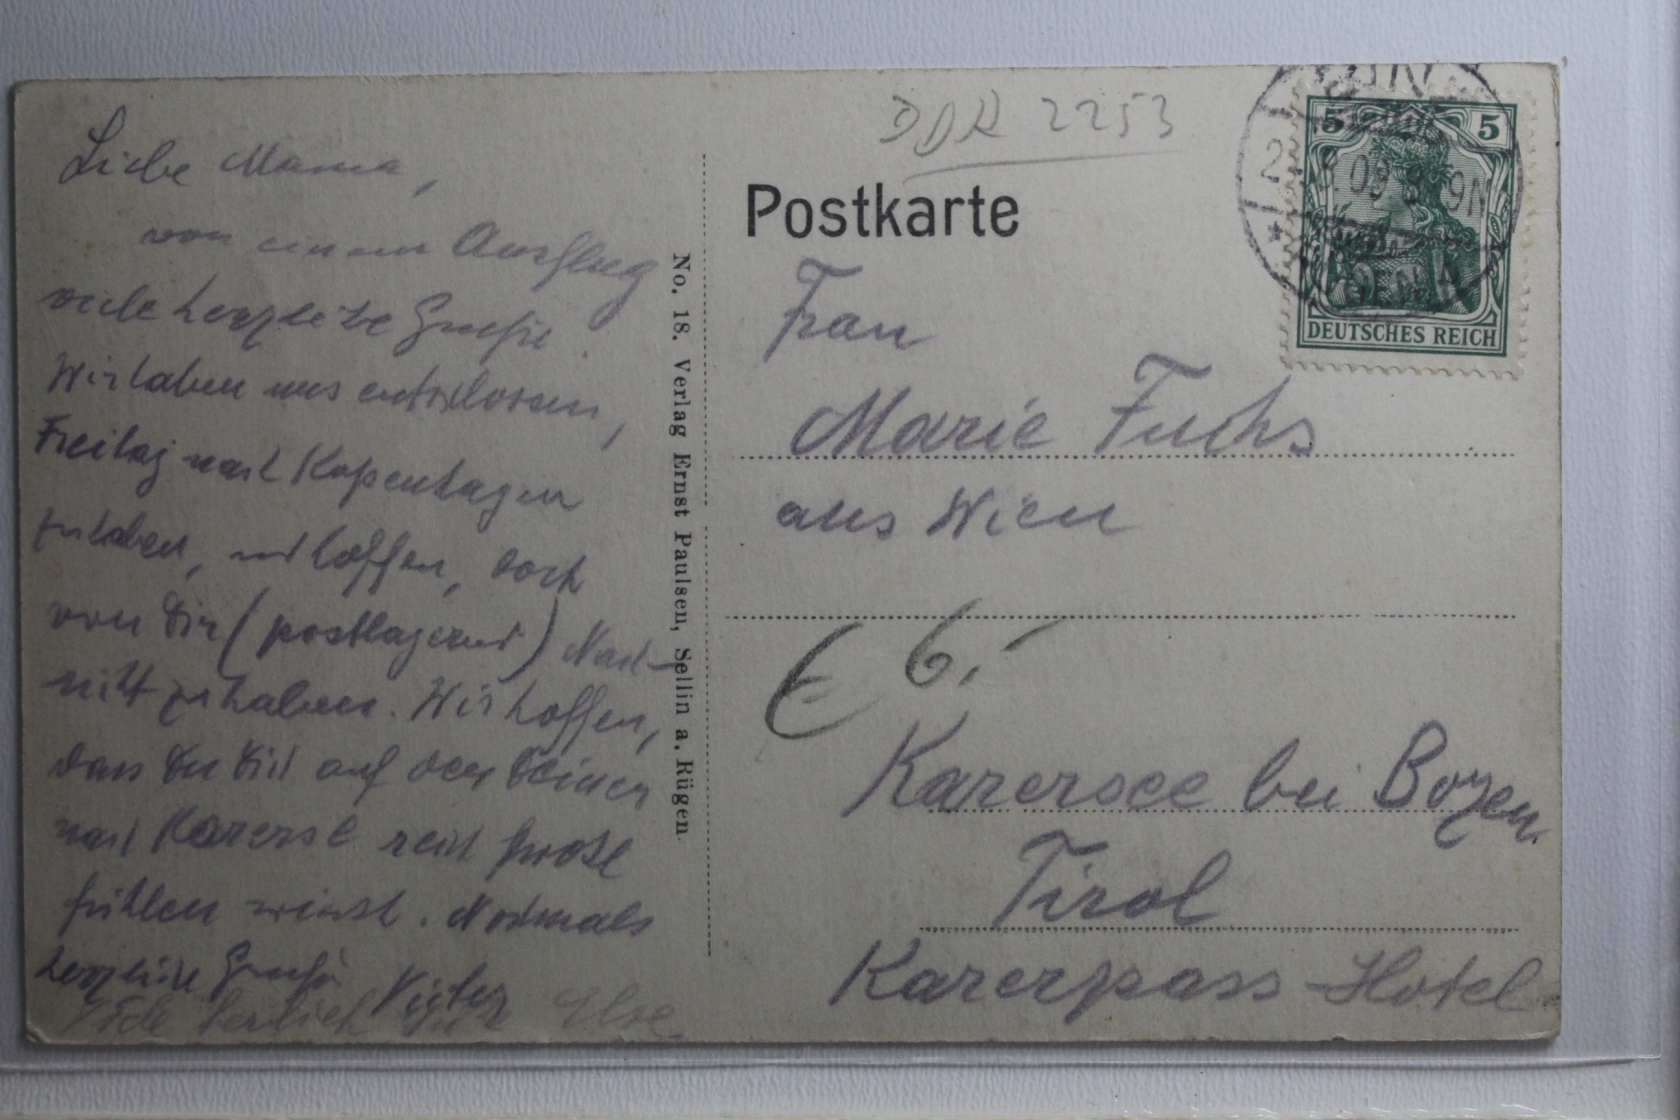 Liebe Mama,
von einem Ausflug
viele herzliche Grüße.
Wir haben uns entschlossen,
Freitag nach Kopenhagen
und hoffen, dort
von Dir (postlagernd) Nach-
richt zu haben. Wir hoffen,
dass Du Dich auf
nach Karersee recht
fühlen wirst. Nochmals
herzliche Grüße Victor
herzlich Else
No. 18. Verlag Ernst Paulsen, Sellin a. Rügen.
DDR 2253
Postkarte
5 5
DEUTSCHES REICH
Frau
Marie Fuchs
aus Wien
€ 6,-
Karersee bei Bozen
Tirol
Karerpass-Hotel